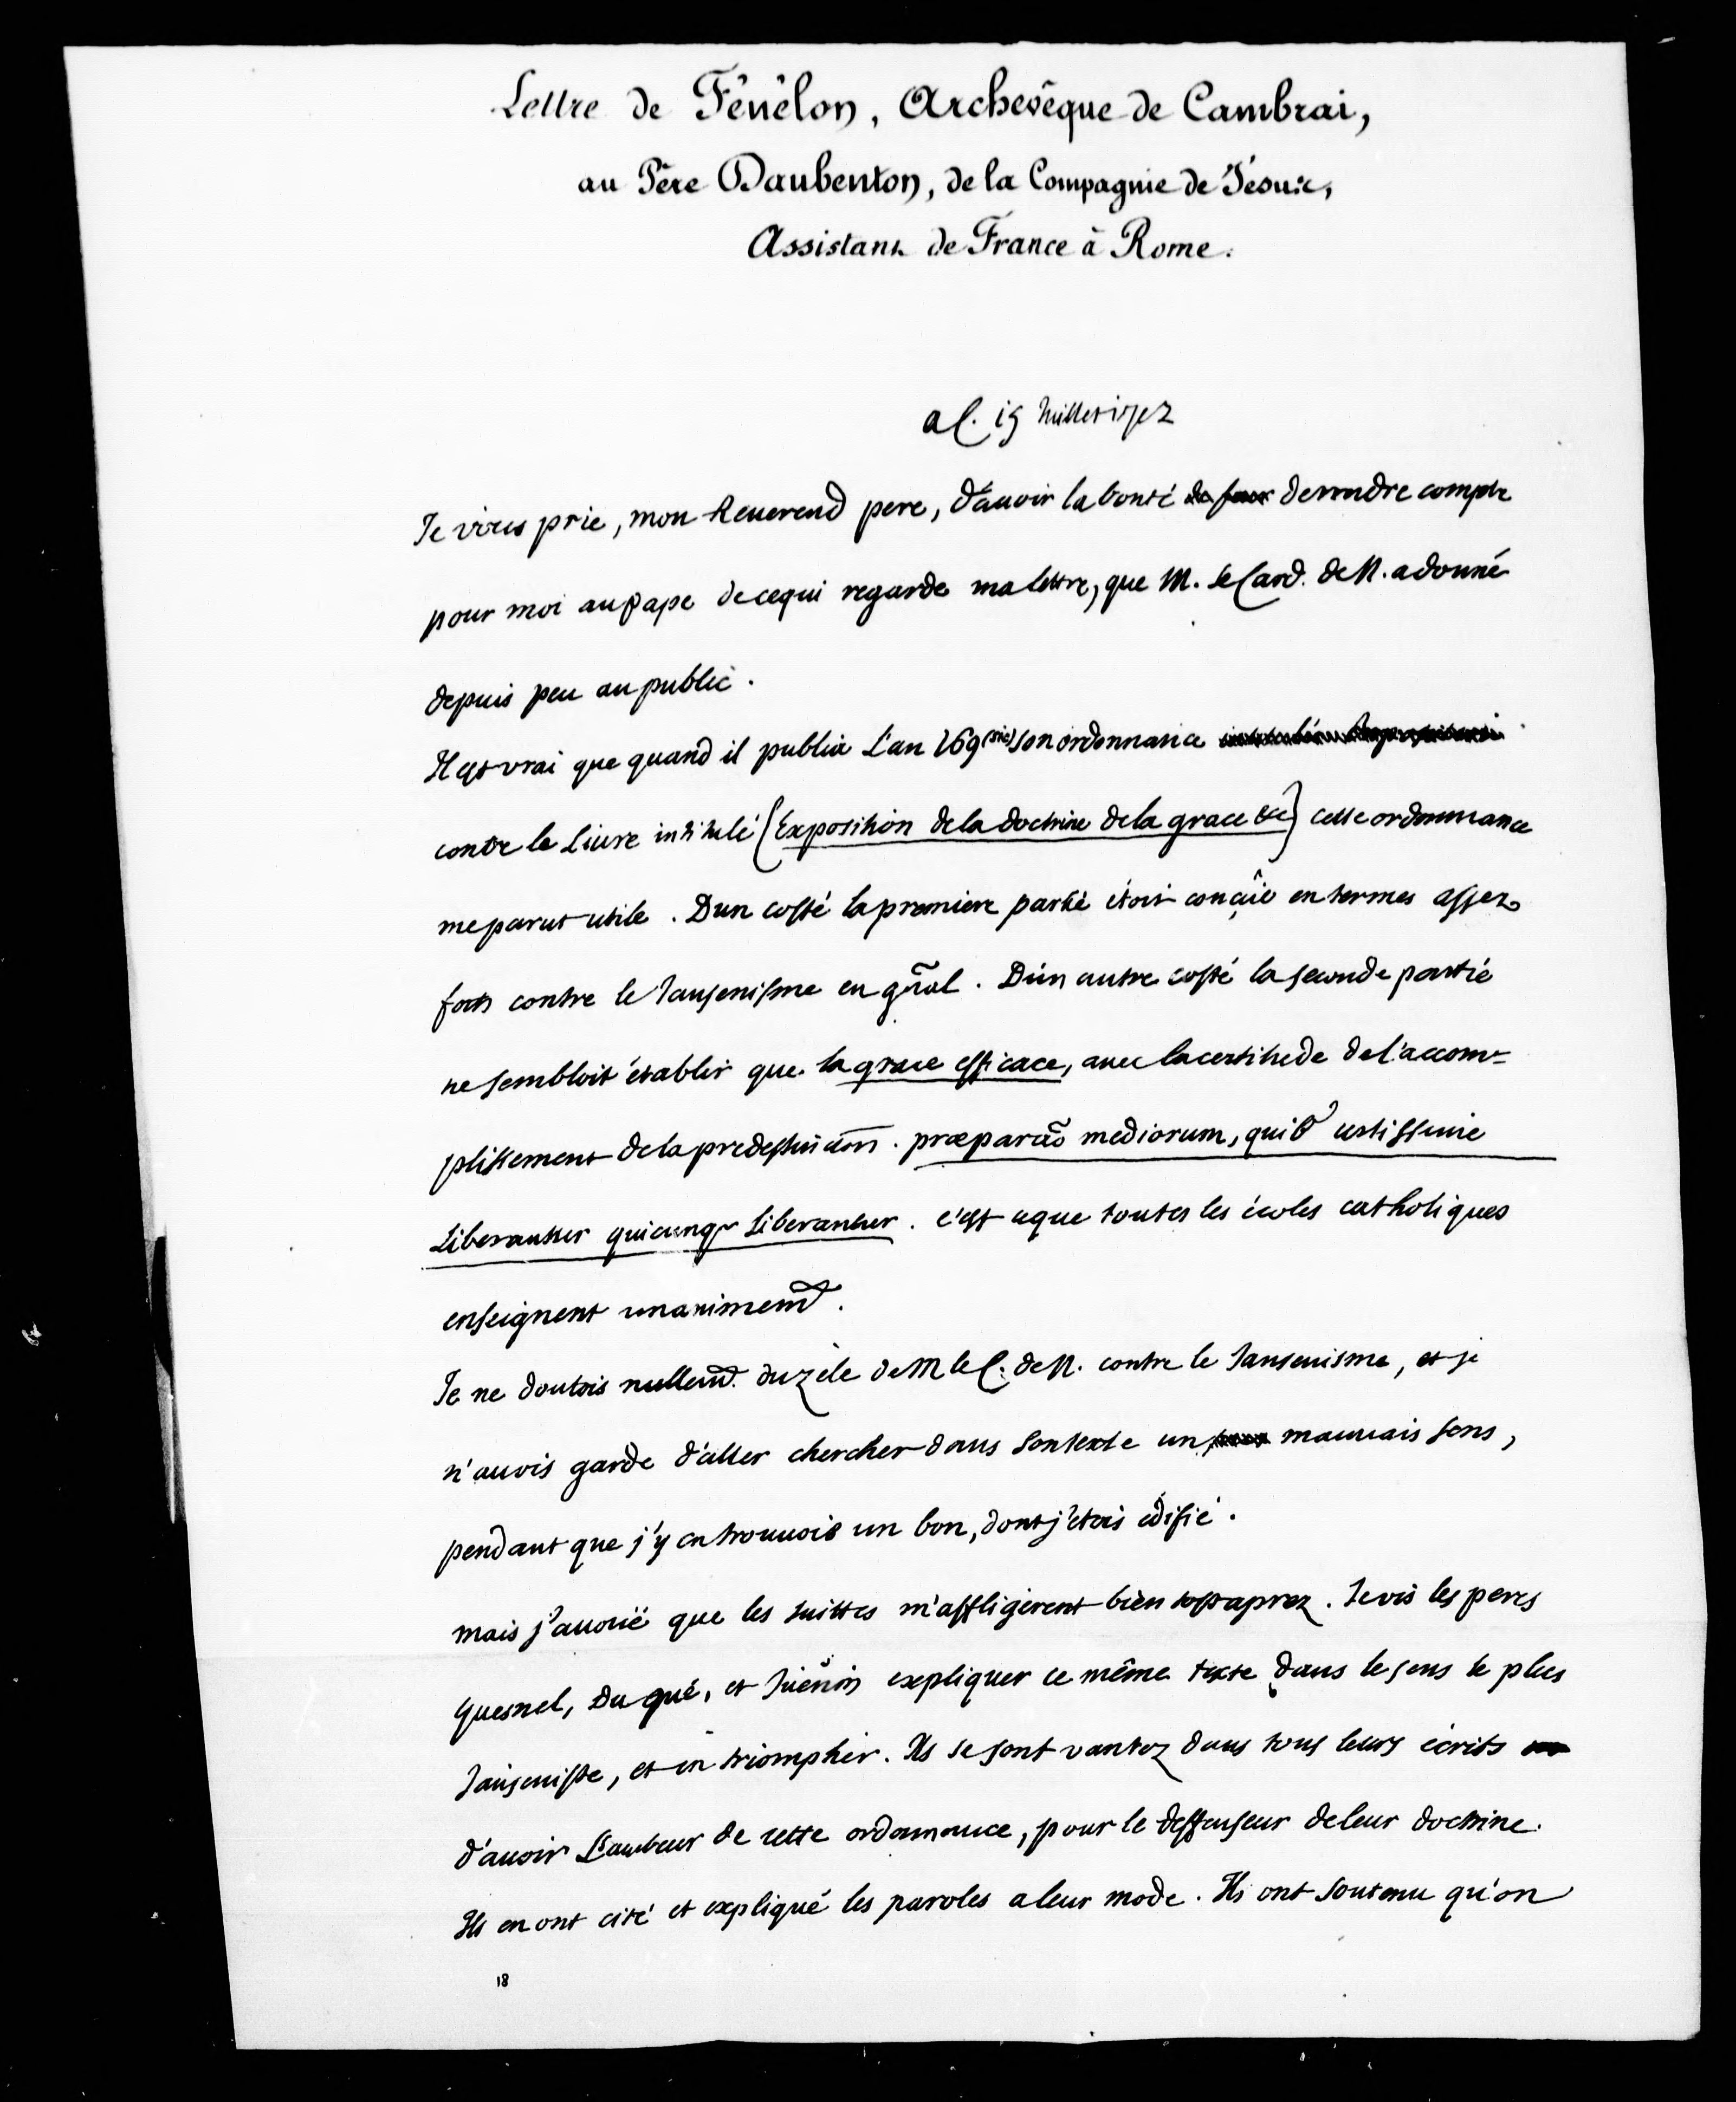 Lettre de Fénélon, Archevêque de Cambrai,
au Père Daubenton, de la Compagnie de Jésus,
Assistant de France à Rome.
a C. 15 Juillet
Je vous prie, mon Reuerend pere, d'auoir la bonté de rendre compte
pour moi au pape de ce qui regarde ma lettre, que M. le Card. de N. a donné
depuis peu au public.
Il est vrai que quand il publia l'an 169 (sic) son ordonnance
contre le liure intitulé (Exposition de la doctrine de la grace &c) cette ordonnance
me parut utile. D'un costé la premiere partie étoit conçüe en termes assez
forts contre le Jansenisme en gñal. D'un autre costé la seconde partie
ne sembloit établir que la grace efficace, auec la certitude de l'accom=
plissement de la predestinaõn. præparaõ mediorum, quib' certissime
liberantur quicunq liberantur. c'est ce que toutes les écoles catholiques
enseignent unanimemt.
Je ne doutois nullemt. du zéle de M le C. de N. contre le Jansenisme, et je
n'auois garde d'aller chercher dans son texte un mauuais sens,
pendant que j'y en trouuois un bon, dont j'étois édifié.
mais j'auoüe que les suittes m'affligerent bien tost aprez. Je vis les peres
Quesnel, Du gué, et Juénin expliquer ce même texte dans le sens le plus
Janseniste, et en triompher. Ils se sont vantez dans tous leurs écrits
d'auoir l'autheur de cette ordonnance, pour le deffenseur de leur doctrine.
Ils en ont cité et expliqué les paroles a leur mode. Ils ont soutenu qu'on
18